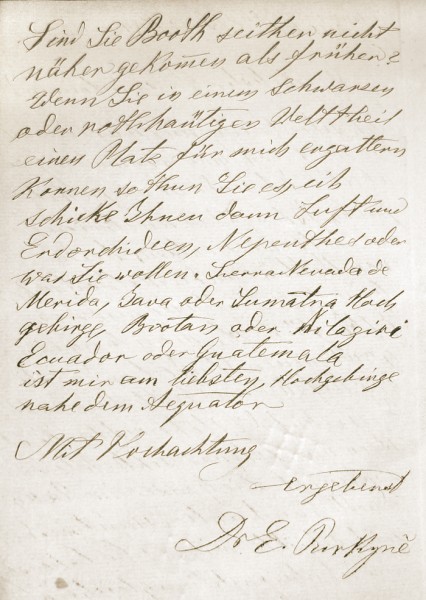 Sind Sie Booth seither nicht
näher gekomen als früher?
Wenn Sie in einem Schwarzen
oder rothhäutigen Welttheil
einen Platz für mich ergattern
können so thun Sie es, ich
schicke Ihnen dann Luft und
Erdorchideen, Nepenthes oder
was Sie wollen. Sierra Nevada de
Merida, Java oder Sumatra Hoch
gebirge, Bootan oder Nilagiri
Ecuador oder Guatemala
ist mir am liebsten, Hochgebirge
nahe dem Aequator
Mit Hochachtung
ergebenst
Dr E. Purkyně